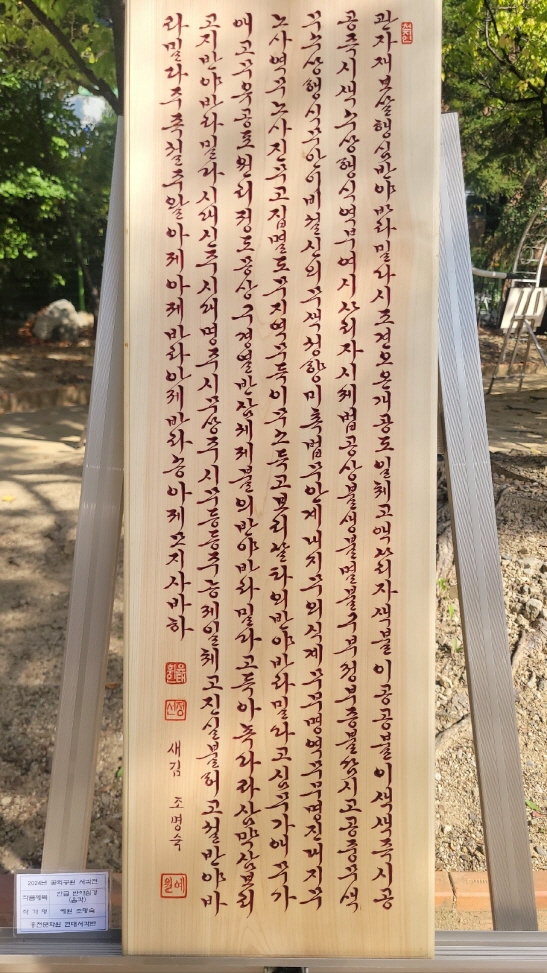 관자재보살행심반야바라밀다시조견오온개공도일체고액사리자색불이공공불이색색즉시공
공즉시색수상행식역부여시사리자시제법공상불생불멸불구부정부증불감시고공중무색
무수상행식무안이비설신의무색성향미촉법무안계내지무의식계무무명역무무명진내지무
노사역무노사진무고집멸도무지역무득이무소득고보리살타의반야바라밀다고심무가애무가
애고무유공포원리전도몽상구경열반삼세제불의반야바라밀다고득아뇩다라삼먁삼보리
고지반야바라밀다시대신주시대명주시무상주시무등등주능제일체고진실불허고설반야바
라밀다주즉설주왈아제아제바라아제바라승아제모지사바하
새김 조명숙
예원
2024년 서각전
한글 반야심경
(음각)
작가명 예원 조명숙
현대서각반